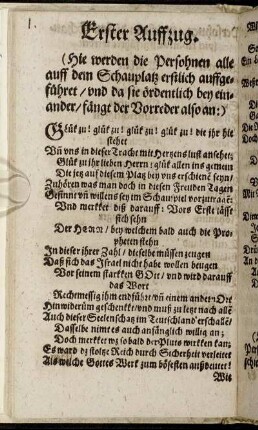 1.
Erster Auffzug.
(Hie werden die Persohnen alle
auff dem Schauplatz erstlich auffge-
führet / vnd da sie ördentlich bey ein-
ander / fängt der Vorreder also an:)
Glük zu! glük zu! glük zu! glük zu! die ihr hie
stehet
Uñ vns in dieser Tracht mit Hertzens lust ansehet;
Glük zu ihr lieben Herrn; glük allen ins gemein
Die jetz auff diesem Platz bey vns erschienē seyn;
Zuhören was man doch in diesen Freuden Tagen
Gesinnet vñ willens sey im Schauspiel vorzutragē:
Vnd merkket diß darauff: Vors Erste lässt
sich sehn
Der HErr / bey welchem bald auch die Pro-
pheten stehn
In dieser ihrer Zahl / dieselbe müssen zeugen
Daß sich das Israel nicht habe wollen beugen
Vor seinem starkken GOtt / vnd wird darauff
das Wort
Rechtmessig ihm endführt / vñ einem ander-Ort
Hinwiderüm geschenkket vnd muß zu letzt nach alle
Auch dieser Seelenschatz im Teutschland erschallē
Dasselbe nimt es auch anfänglich willig an;
Doch merkket wz so bald der Pluto wirkken kan;
Es ward dz stoltze Reich durch Sicherheit verleitet
Als welche Gottes Werk zum bösesten außdeutet!
Wit